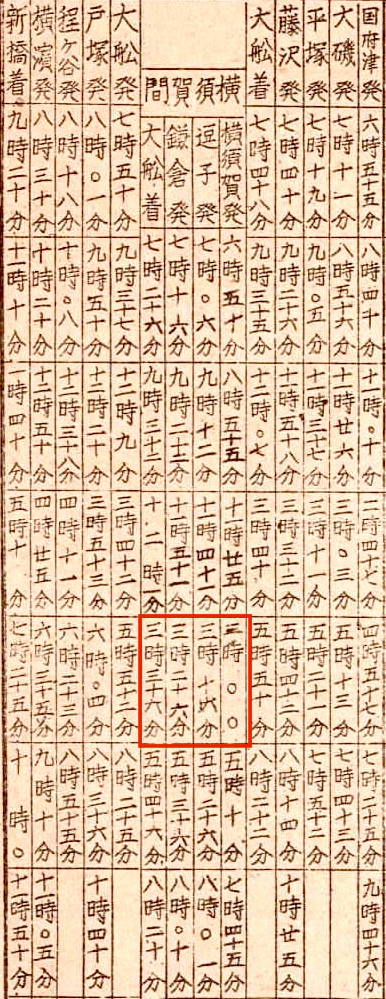 国府津発 六時五十五分 八時四十分 十一時〇十分 二時四十七分 四時五十七分 七時二十五分 九時四十六分
大磯発 七時十一分 八時五十六分 十一時廿六分 三時〇三分 五時十三分 七時四十三分
平塚発 七時十九分 九時〇五分 十一時三十七分 三時十一分 五時二十一分 七時五十二分
藤沢発 七時四十分 九時二十六分 十一時五十八分 三時三十二分 五時四十二分 八時十四分 十時廿五分
大舩着 七時四十八分 九時三十五分 十二時〇七分 三時四十分 五時五十分 八時二十二分
横須賀間
横須賀発 六時五十分 八時五十五分 十一時廿五分 三時〇〇 五時十分 七時四十五分
逗子発 七時〇六分 九時十二分 十一時四十分 三時十六分 五時二十六分 八時〇一分
鎌倉発 七時十六分 九時二十三分 十一時五十一分 三時二十六分 五時三十六分 八時〇十分
大舩着 七時二十六分 九時三十三分 十二時一分 三時三十六分 五時四十六分 八時二十分
大舩発 七時五十分 九時三十七分 十二時九分 三時四十二分 五時五十二分 八時二十五分
戸塚発 八時〇一分 九時五十分 十二時二十分 三時五十三分 六時〇四分 八時三十六分 十時四十分
程ヶ谷発 八時十八分 十時〇八分 十二時三十八分 四時十一分 六時二十三分 八時五十五分
横濱発 八時三十分 十時二十分 十二時五十分 四時廿五分 六時三十五分 九時十分 十一時〇五分
新橋着 九時二十分 十一時十分 一時四十分 五時十分 七時二十五分 十時〇 十一時五十分